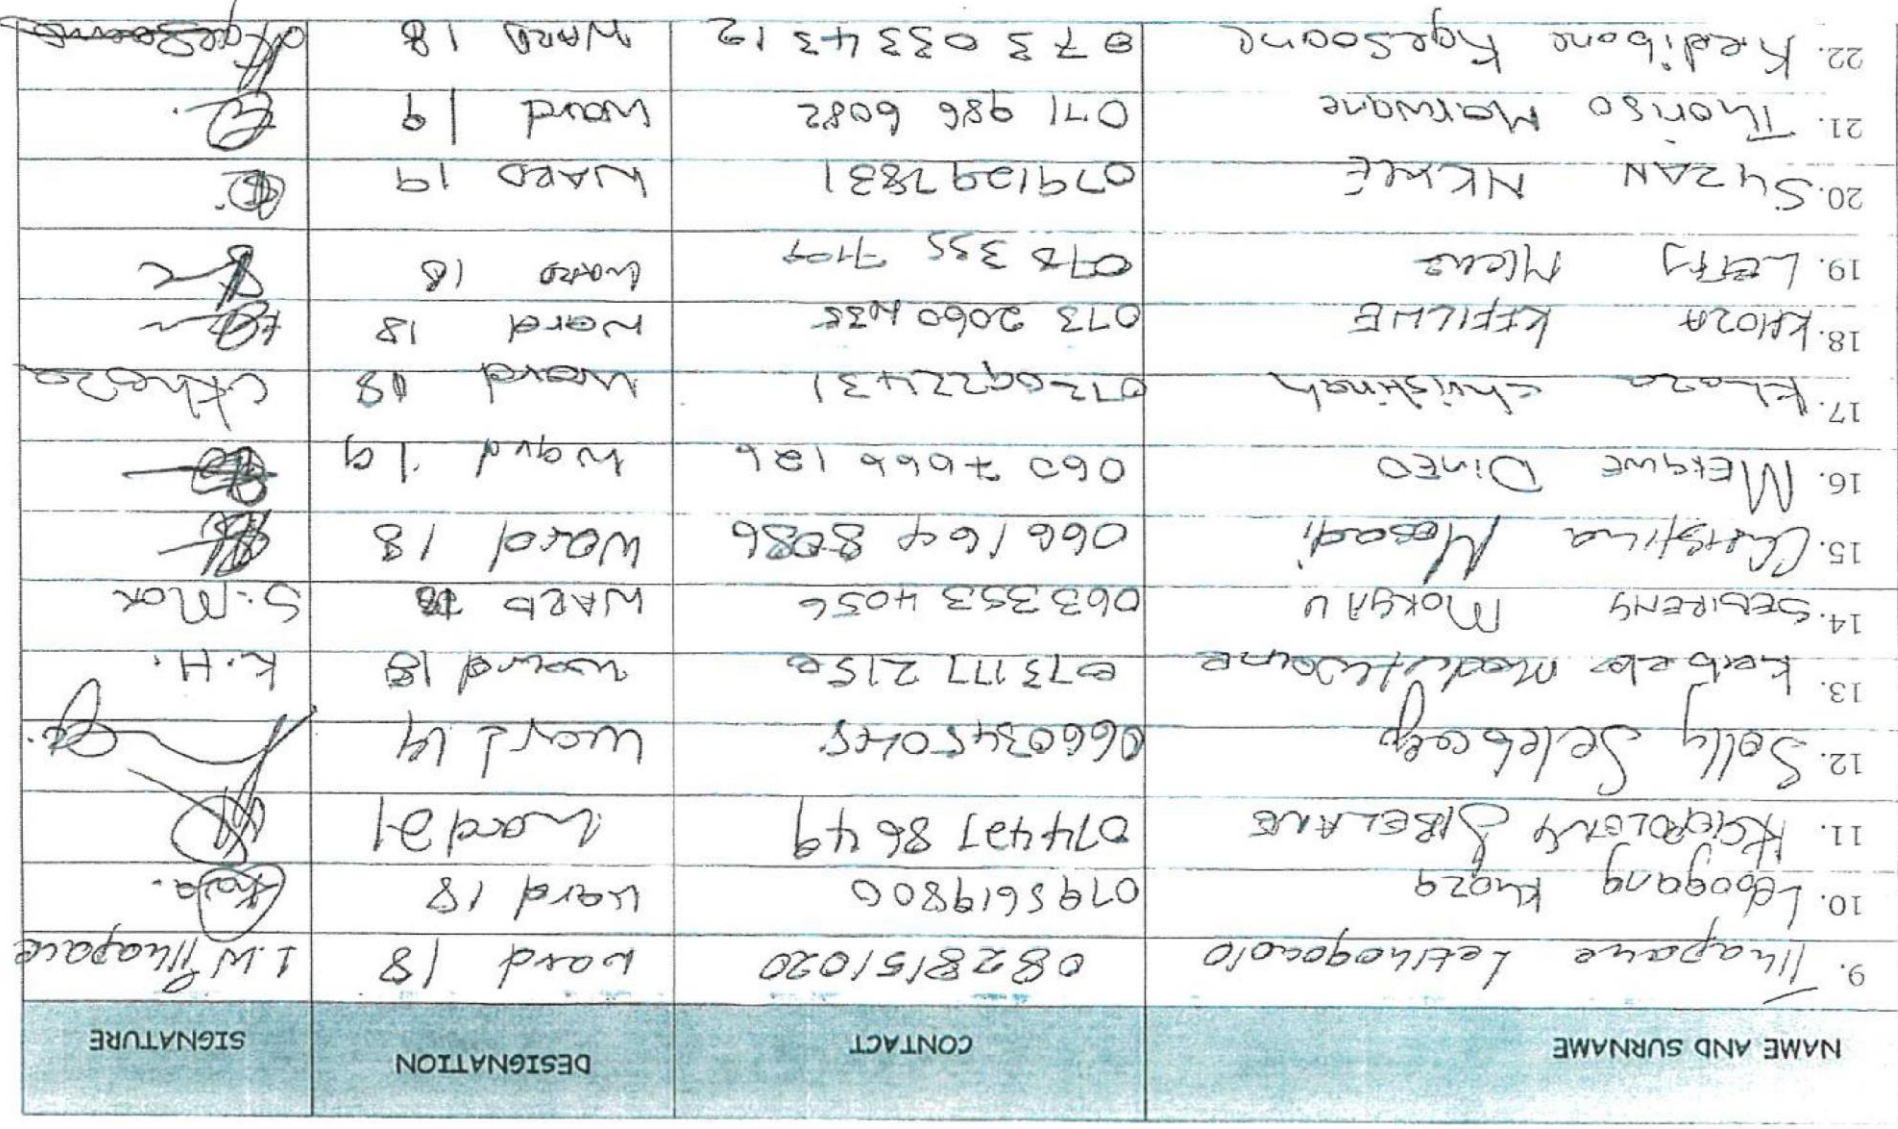 NAME AND SURNAME CONTACT DESIGNATION SIGNATURE
9. Thapane Letlhogonolo 0828151020 ward 18 L.W Thapane
10. Lebogang Khoza 0795619800 ward 18
11. SIBELANE 0744278649 ward 21
12. Solly 0660345045 Ward 14
13. 073177 2150 ward 18 K.H.
14. SEBIRENG MOKGAU 063 353 4056 WARD 18 S. Mok
15. Christina Mosadi 066 164 8086 Ward 18
16. MEKGWE DINEO 060 7066 126 Ward 19
17. Khoza Christinah 0720922431 Ward 18 C Khoza
18. KHOZA KEFILWE 073 2060 ward 18
19. LETTY 078 355 WARD 18
20. SUZAN 0791297831 WARD 19
21. Thoriso Marwane 071 986 6082 Ward 19
22. Kedibone Kgesoane 073 033 4312 WARD 18